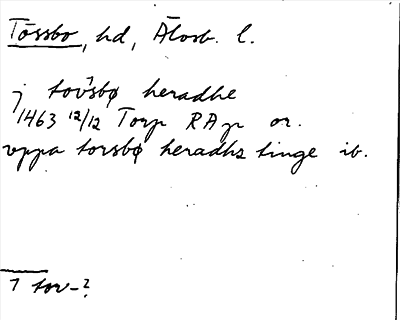 Tössbo, hd, Älvsb. l.
j tovsbø heradhe
1463 12/12 Torp RAp or.
vppa torsbø heradhz tinge ib.
1 tov-?